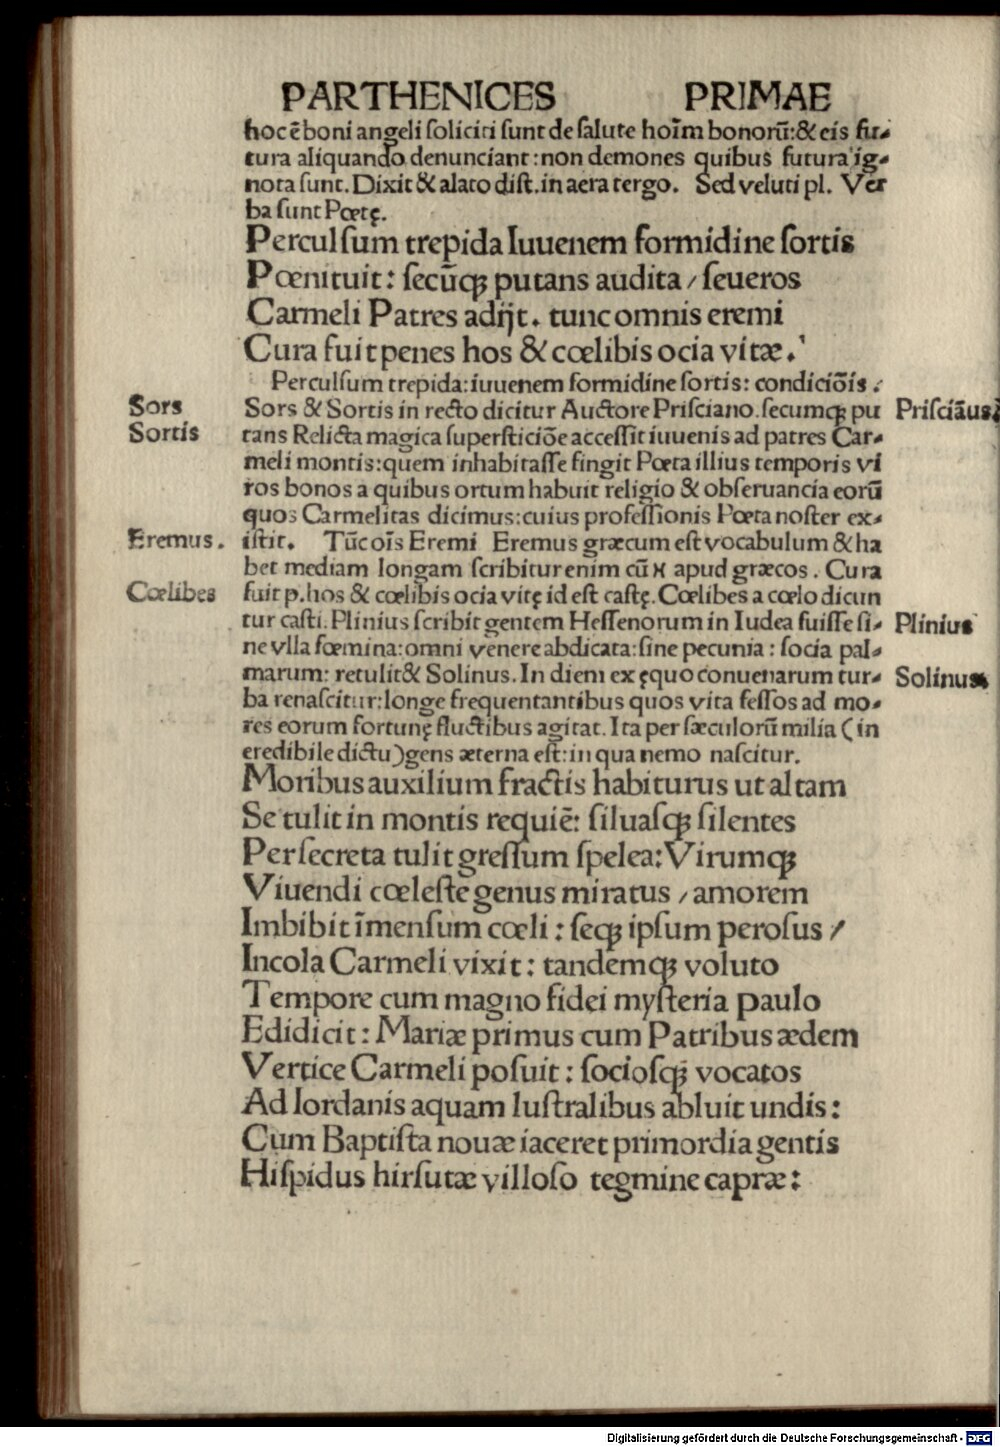 PARTHENICES PRIMAE
hoc ē boni angeli ſoliciti ſunt de ſalute hoīm bonorū:& eis fu-
tura aliquando denunciant: non demones quibus futura ig-
nota ſunt. Dixit & alato diſt. in aera tergo. Sed veluti pl. Ver
ba ſunt Poetę.
Perculſum trepida Iuuenem formidine ſortis
Pœnituit: ſecūqꝫ putans audita / ſeueros
Carmeli Patres adijt. tunc omnis eremi
Cura fuit penes hos & cœlibis ocia vitæ.
Perculſum trepida: iuuenem formidine ſortis: condiciōis:
Sors
Sors & Sortis in recto dicitur Auctore Priſciano. ſecumqꝫ pu
Priſciāus
Sortis
tans Relicta magica ſuperſticiōe acceſſit iuuenis ad patres Car-
meli montis: quem inhabitaſſe fingit Poeta illius temporis vi
ros bonos a quibus ortum habuit religio & obſeruancia eorū
quos Carmelitas dicimus: cuius profeſſionis Poeta noſter ex-
Eremus.
iſtit. Tūc oīs Eremi Eremus græcum eſt vocabulum & ha
bet mediam longam ſcribitur enim cū ϰ apud græcos. Cura
Cœlibes
fuit p. hos & cœlibis ocia vitę id eſt caſtę. Cœlibes a cœlo dicun
tur caſti. Plinius ſcribit gentem Heſſenorum in Iudea fuiſſe ſi-
Plinius
ne vlla fœmina: omni venere abdicata: ſine pecunia: ſocia pal-
marum: retulit & Solinus. In diem ex ęquo conuenarum tur-
Solinus
ba renaſcitur: longe frequentantibus quos vita feſſos ad mo-
res eorum fortunę fluctibus agitat. Ita per ſæculorū milia (in
credibile dictu) gens æterna eſt: in qua nemo naſcitur.
Moribus auxilium fractis habiturus ut altam
Se tulit in montis requiē: ſiluaſqꝫ ſilentes
Per ſecreta tulit greſſum ſpelea: Virumqꝫ
Viuendi cœleſte genus miratus / amorem
Imbibit īmenſum cœli: ſeqꝫ ipſum peroſus /
Incola Carmeli vixit: tandemqꝫ voluto
Tempore cum magno fidei myſteria paulo
Edidicit: Mariæ primus cum Patribus ædem
Vertice Carmeli poſuit: ſocioſqꝫ vocatos
Ad Iordanis aquam luſtralibus abluit undis:
Cum Baptiſta nouæ iaceret primordia gentis
Hiſpidus hirſutæ villoſo tegmine capræ:
Digitalisierung gefördert durch die Deutsche Forschungsgemeinschaft - DFG